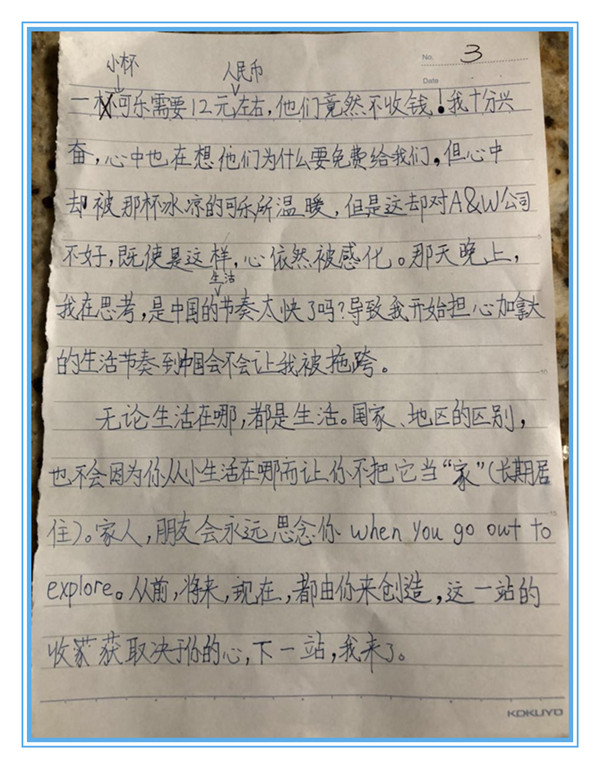 No. 3
Date
小杯 人民币
一杯可乐需要12元左右,他们竟然不收钱!我十分兴
奋,心中也在想他们为什么要免费给我们,但心中
却被那杯冰凉的可乐所温暖,但是这却对A&W公司
不好,既使是这样,心依然被感化。那天晚上,
生活
我在思考,是中国的节奏太快了吗?导致我开始担心加拿大
的生活节奏到中国会不会让我被拖跨。
无论生活在哪,都是生活。国家、地区的区别,
也不会因为你从小生活在哪而让你不把它当“家”(长期居
住)。家人,朋友会永远思念你 when you go out to
explore。从前,将来,现在,都由你来创造,这一站的
收获取决于你的心,下一站,我来了。
KOKUYO